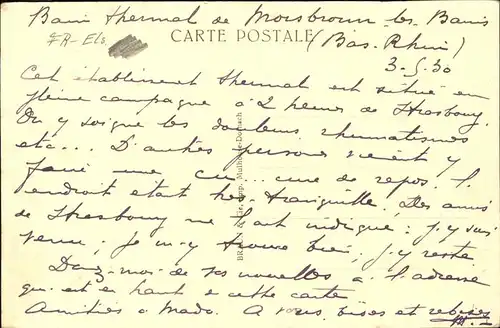 Bain thermal de Morsbronn les Bains
FR-Els
CARTE POSTALE
(Bas-Rhin)
3.5.30
Cet établissement thermal est situé en
pleine campagne à 2 heures de Strasbourg.
On y soigne les douleurs, rhumatismes
etc... D'autres personnes viennent y
faire une cu... cure de repos. l'
endroit étant très tranquille. Des amis
de Strasbourg me l'ont indiqué : j'y suis
venu ; je m'y trouve bien, j'y reste
Donnez-moi de vos nouvelles à l'adresse
qui est en haut de cette carte
Amitiés à Mado. A vous, bises et rebises
Imp. Mulhouse-Dornach